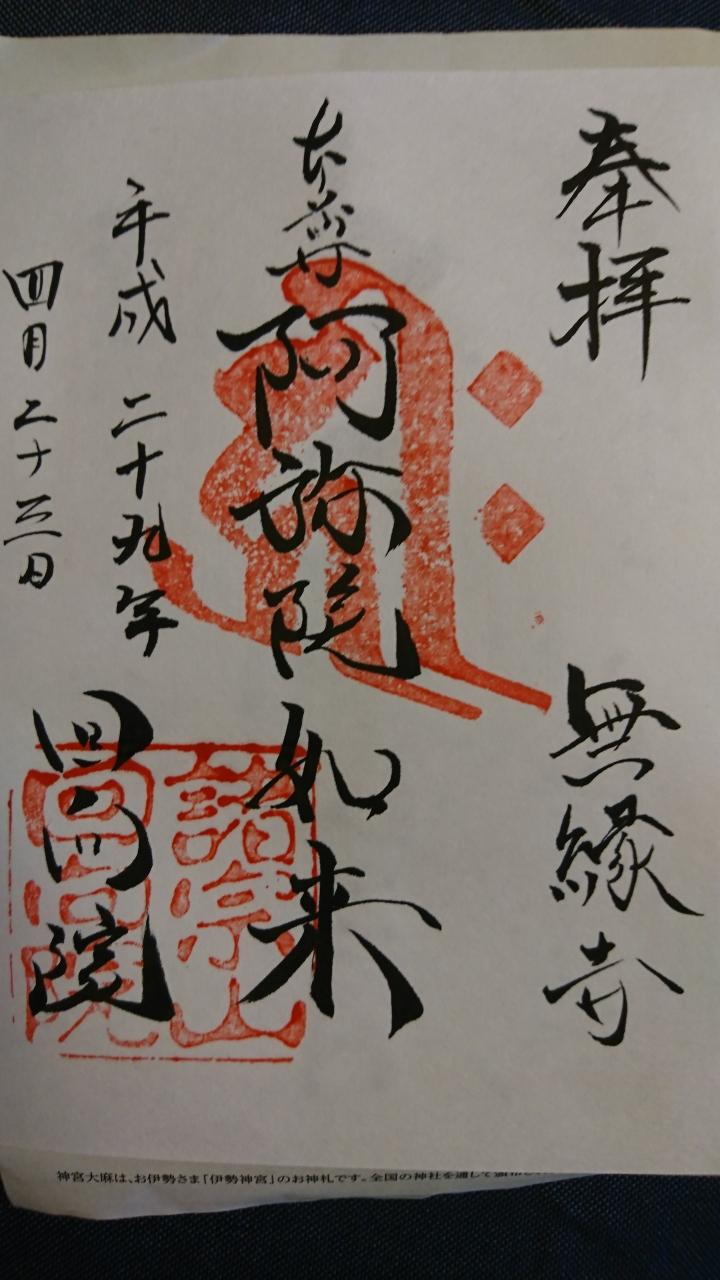 奉拝
無縁寺
本尊 阿弥陀如来
平成二十九年
四月二十三日
回向院
諸宗山
回向院
神宮大麻は、お伊勢さま「伊勢神宮」のお神札です。全国の神社を通して頒布